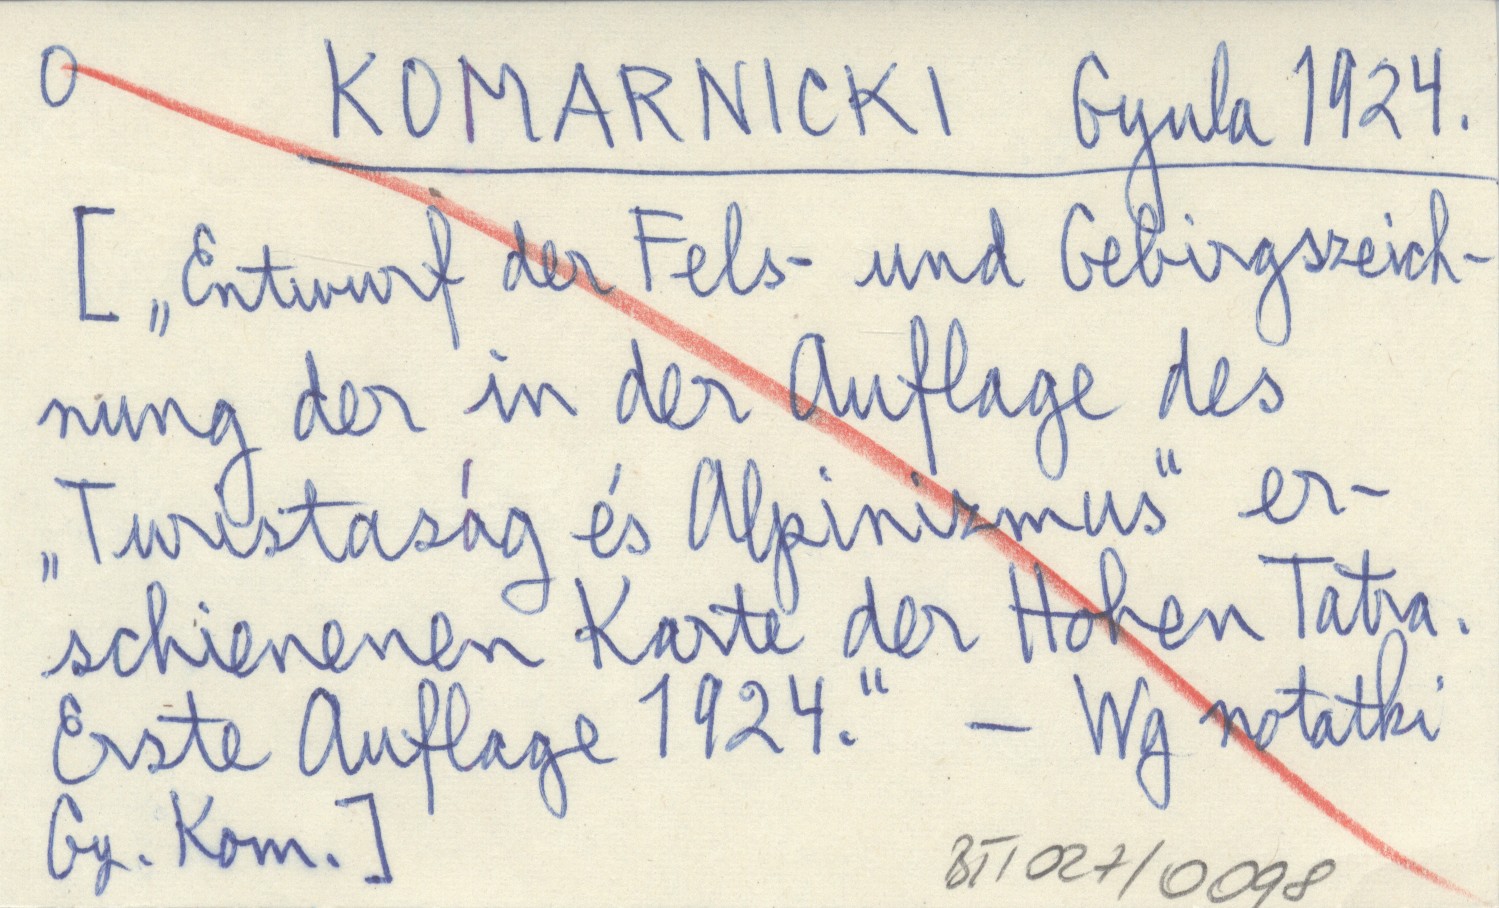 O KOMARNICKI Gyula 1924.
[„Entwurf der Fels- und Gebirgszeich-
nung der in der Auflage des
„Turistaság és Alpinizmus" er-
schienenen Karte der Hohen Tatra.
Erste Auflage 1924." — Wg notatki
Gy. Kom.]
BTT 027/0098